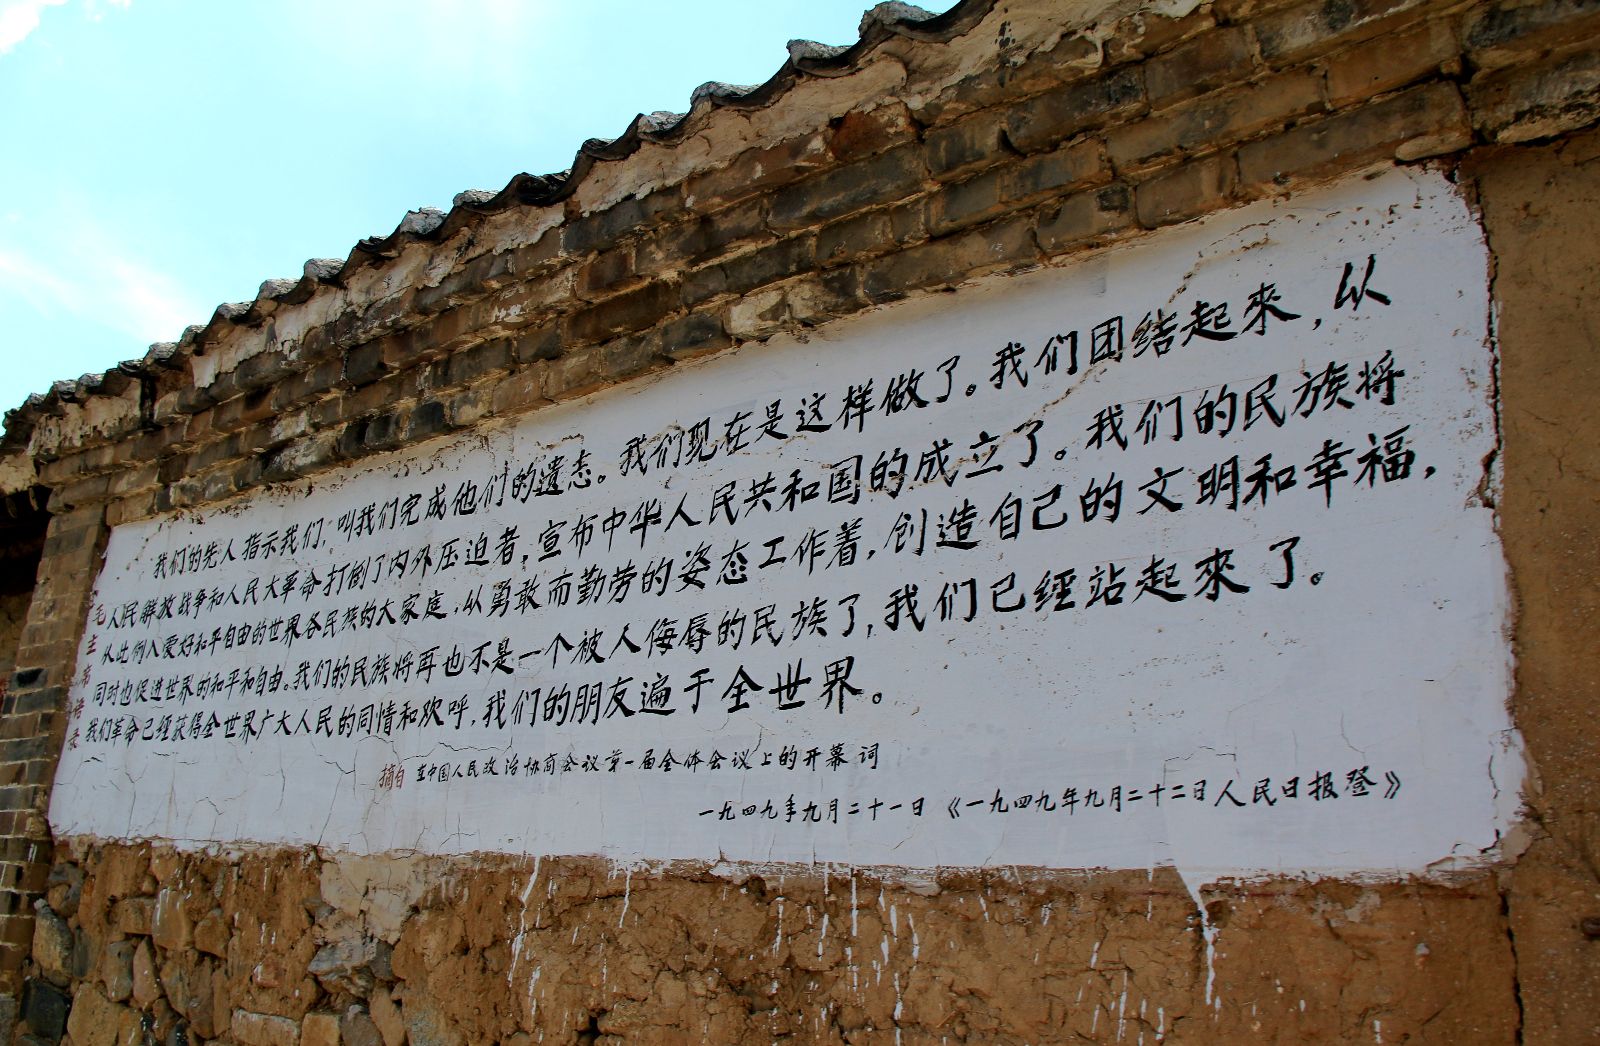 毛主席语录
我们的先人指示我们，叫我们完成他们的遗志。我们现在是这样做了。我们团结起來，从
人民解放战争和人民大革命打倒了内外压迫者，宣布中华人民共和国的成立了。我们的民族将
从此例入爱好和平自由的世界各民族的大家庭，从勇敢而勤劳的姿态工作着，创造自己的文明和幸福，
同时也促进世界的和平和自由。我们的民族将再也不是一个被人侮辱的民族了，我们已经站起來了。
我们革命已经获得全世界广大人民的同情和欢呼，我们的朋友遍于全世界。
摘自 在中国人民政治协商会议第一届全体会议上的开幕词
一九四九年九月二十一日《一九四九年九月二十二日人民日报登》